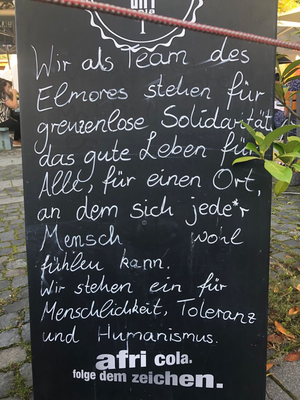 afri
cola
1
Wir als Team des
Elmores stehen für
grenzenlose Solidarität
das gute Leben für
Alle, für einen Ort,
an dem sich jede*r
Mensch wohl
fühlen kann.
Wir stehen ein für
Menschlichkeit, Toleranz
und Humanismus.
afri cola.
folge dem zeichen.